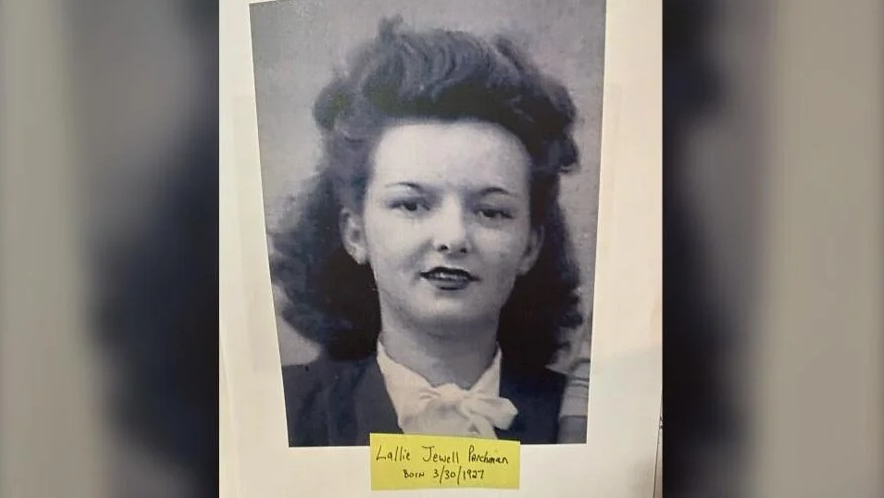 Lallie Jewell Parchman
BORN 3/30/1927